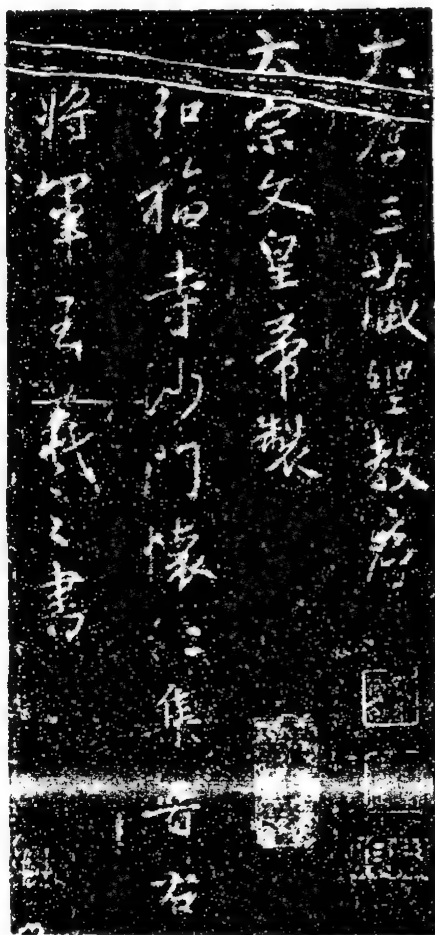 大唐三藏聖教序
太宗文皇帝製
弘福寺沙門懷仁集晉右
將軍王羲之書